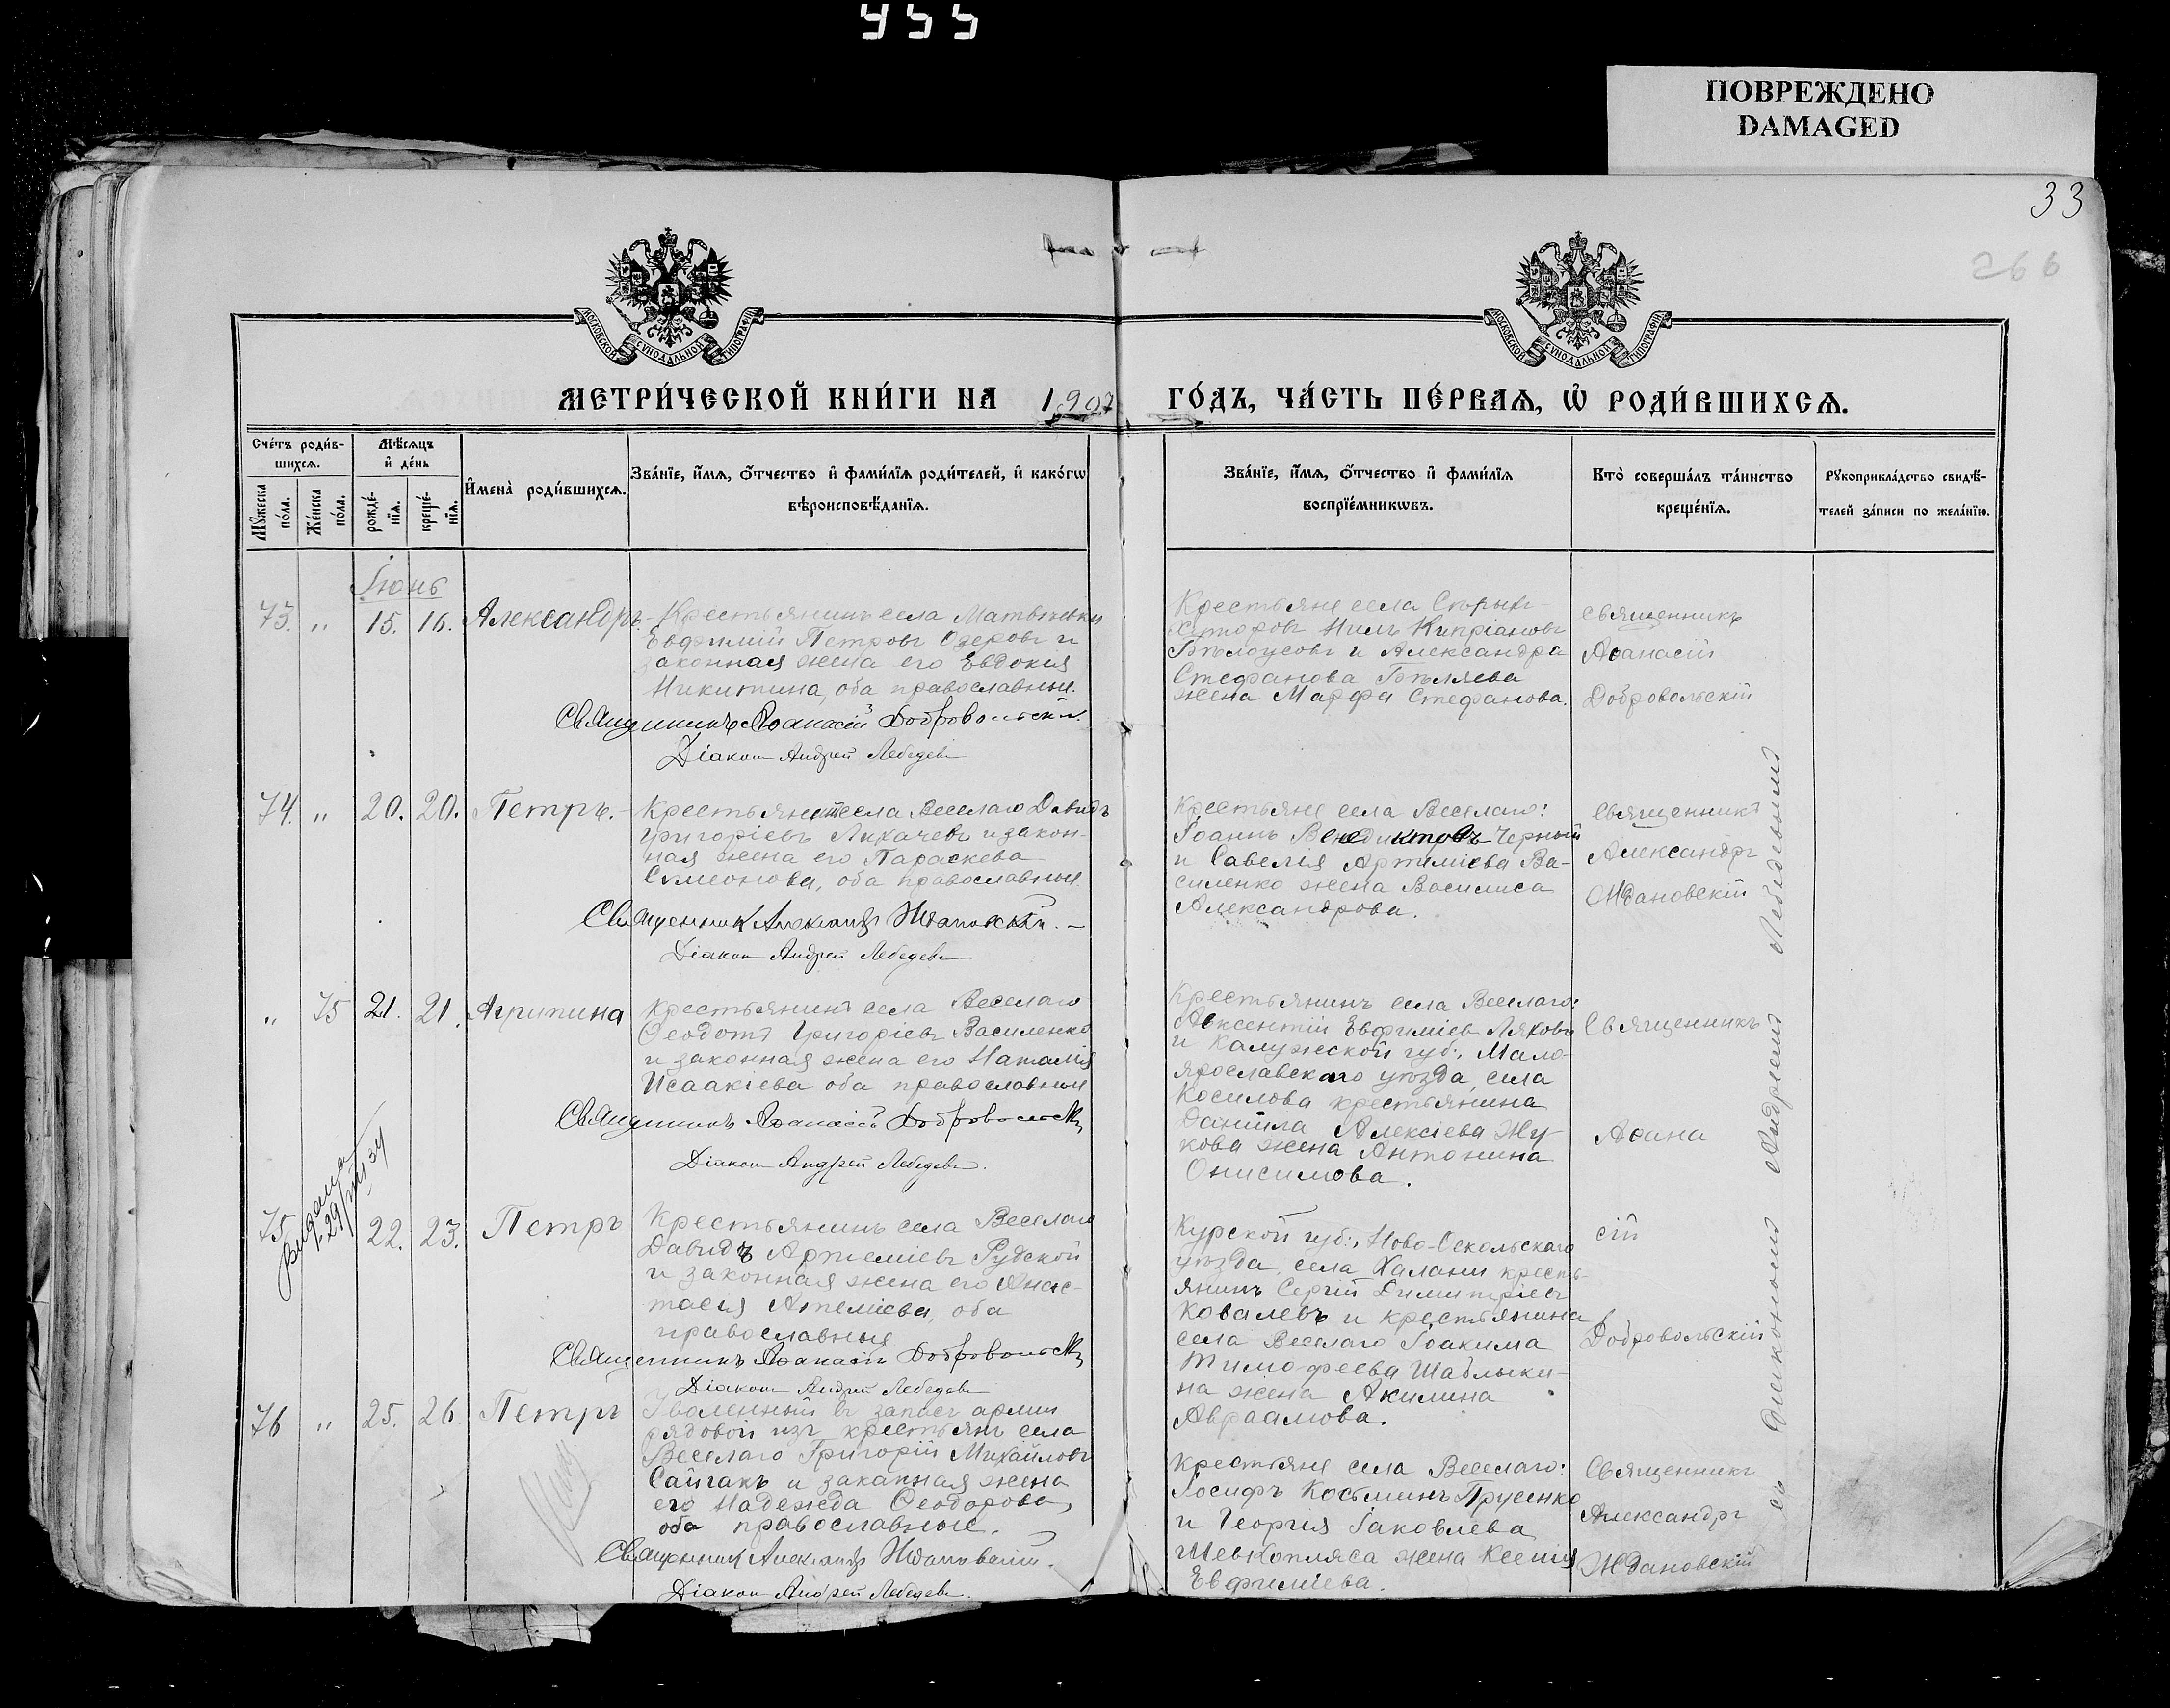 455
ПОВРЕЖДЕНО
DAMAGED
33
266
МОСКОВСКОЙ СѴНОДАЛЬНОЙ ТИПОГРАФІИ
МОСКОВСКОЙ СѴНОДАЛЬНОЙ ТИПОГРАФІИ
МЕТРИ́ЧЕСКОЙ КНИ́ГИ НА 1907 ГО́ДЪ, ЧА́СТЬ ПЕ́РВАѦ, Ѡ҆ РОДИ́ВШИХСѦ.
Сче́тъ роди́в-
шихсѧ.
Мꙋ́жеска по́ла.
Же́нска по́ла.
Мѣ́сѧцъ
и҆ де́нь
рожде́-
нїѧ.
креще́-
нїѧ.
И҆мена̀ роди́вшихсѧ.
Зва́нїе, и҆́мѧ, ѻ҆́тчество и҆ фами́лїѧ роди́телей, и҆ како́гѡ
вѣроисповѣ́данїѧ.
Зва́нїе, и҆́мѧ, ѻ҆́тчество и҆ фами́лїѧ
воспрїе́мникѡвъ.
Кто̀ соверша́лъ та́инство
креще́нїѧ.
Рꙋкоприкла́дство свидѣ́-
телей за́писи по жела́нїю.
Іюнь
73. " 15. 16. Александръ.
Крестьянинъ села Матвѣевки
Евфимій Петровъ Озеровъ и
законная жена его Евдокія
Никитина, оба православные.
Священникъ Аѳанасій Добровольскій.
Діаконъ Андрей Лебедевъ
Крестьяне села
Хуторовъ Нилъ Кипріановъ
Бѣлоусовъ и Александра
Стефанова Бѣляева
жена Марфа Стефанова.
Священникъ
Аѳанасій
Добровольскій
74. " 20. 20. Петръ.-
Крестьянинъ села Веселаго Давидъ
Григоріевъ Лихачевъ и закон-
ная жена его Параскева
Симеонова, оба православные.
Священникъ Александръ Ждановскій.-
Діаконъ Андрей Лебедевъ
Крестьяне села Веселаго:
Іоаннъ Венедиктовъ Черный
и Савелія Артеміева Ва-
силенко жена Василиса
Александрова.
Священникъ
Александръ
Ждановскій
" 75 21. 21. Агрипина
Крестьянинъ села Веселаго
Ѳеодотъ Григоріевъ Василенко
и законная жена его Наталія
Исаакіева оба православные
Священникъ Аѳанасій Добровольскій
Діаконъ Андрей Лебедевъ.
Крестьянинъ села Веселаго:
Авксентій Евфиміевъ Ляховъ
и Калужской губ., Мало-
ярославскаго уѣзда, села
Косилова крестьянина
Даніила Алексіева Жу-
кова жена Антонина
Онисимова.
Священникъ
Аѳана
сій
Добровольскій
75 22. 23. Петръ
Выдана
29/VIII 34
Крестьянинъ села Веселаго
Давидъ Артеміевъ Рудской
и законная жена его Анас-
тасія Артеміева, оба
православные
Священникъ Аѳанасій Добровольскій
Діаконъ Андрей Лебедевъ
Курской губ., Ново-Оскольскаго
уѣзда, села Халани кресть-
янинъ Сергій Димитріевъ
Ковалевъ и крестьянина
села Веселаго Іоакима
Тимофеева Шаблыки-
на жена Акилина
Авраамова.
76 " 25. 26. Петръ
Уволенный въ запасъ арміи
рядовой изъ крестьянъ села
Веселаго Григорій Михайловъ
Сайгакъ и законная жена
его Надежда Ѳеодорова,
оба православные.
Священникъ Александръ Ждановскій.
Діаконъ Андрей Лебедевъ.
Крестьяне села Веселаго:
Іосифъ Косьминъ Прусенко
и Георгія Іаковлева
Шевкопляса жена Ксенія
Евфиміева.
Священникъ
Александръ
Ждановскій
съ Діакономъ Андреемъ Лебедевымъ